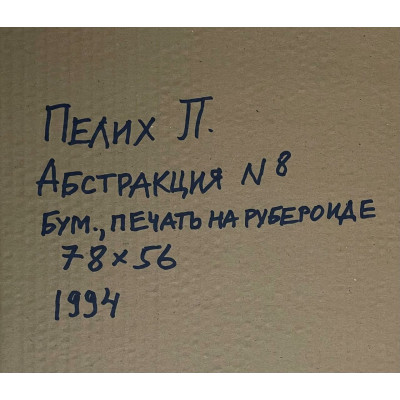 Пелих П.
Абстракция N 8
Бум., печать на рубероиде
78×56
1994